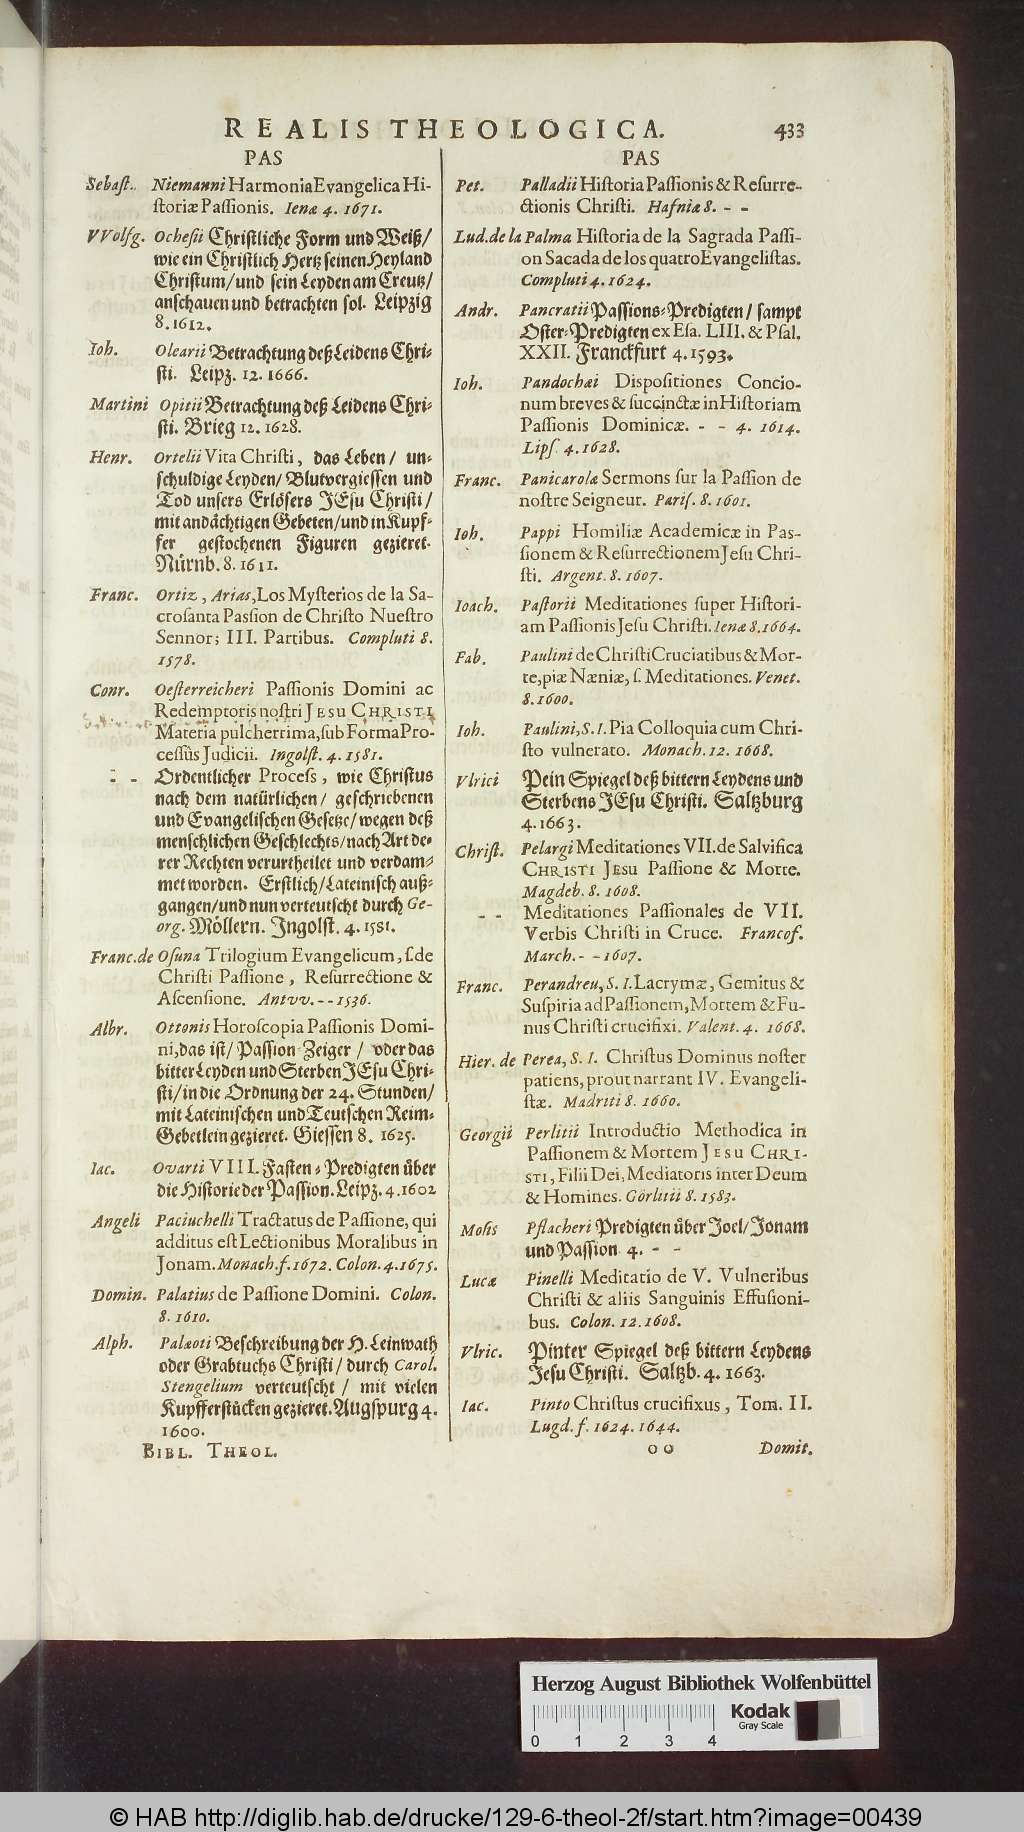 REALIS THEOLOGICA. 433
PAS
Sebast. Niemanni Harmonia Evangelica Hi-
storiæ Passionis. Ienæ 4. 1671.
VVolfg. Ochesii Christliche Form und Weiß/
wie ein Christlich Hertz seinen Heyland
Christum/und sein Leyden am Creutz/
anschauen und betrachten sol. Leipzig
8. 1612.
Ioh. Olearii Betrachtung deß Leidens Chri-
sti. Leipz. 12. 1666.
Martini Opitii Betrachtung deß Leidens Chri-
sti. Brieg 12. 1628.
Henr. Ortelii Vita Christi, das Leben/ un-
schuldige Leyden/ Blutvergiessen und
Tod unsers Erlösers JEsu Christi/
mit andächtigen Gebeten/und in Kupf-
fer gestochenen Figuren gezieret.
Nürnb. 8. 1611.
Franc. Ortiz, Arias, Los Mysterios de la Sa-
crosanta Passion de Christo Nuestro
Sennor; III. Partibus. Compluti 8.
1578.
Conr. Oesterreicheri Passionis Domini ac
Redemptoris nostri JESU CHRISTI
Materia pulcherrima, sub Forma Pro-
cessûs Judicii. Ingolst. 4. 1581.
- - Ordentlicher Process, wie Christus
nach dem natürlichen/ geschriebenen
und Evangelischen Gesetze/wegen deß
menschlichen Geschlechts/nach Art de-
rer Rechten verurtheilet und verdam-
met worden. Erstlich/Lateinisch auß-
gangen/und nun verteutscht durch Ge-
org. Möllern. Ingolst. 4. 1581.
Franc. de Osuna Trilogium Evangelicum, s. de
Christi Passione, Resurrectione &
Ascensione. Antvv. - - 1536.
Albr. Ottonis Horoscopia Passionis Domi-
ni, das ist/ Passion-Zeiger/ oder das
bitter Leyden und Sterben JEsu Chri-
sti/in die Ordnung der 24. Stunden/
mit Lateinischen und Teutschen Reim-
Gebetlein gezieret. Giessen 8. 1625.
Iac. Ovarti VIII. Fasten-Predigten über
die Historie der Passion. Leipz. 4. 1602
Angeli Paciuchelli Tractatus de Passione, qui
additus est Lectionibus Moralibus in
Jonam. Monach. f. 1672. Colon. 4. 1675.
Domin. Palatius de Passione Domini. Colon.
8. 1610.
Alph. Palæoti Beschreibung der H. Leinwath
oder Grabtuchs Christi/ durch Carol.
Stengelium verteutscht/ mit vielen
Kupfferstücken gezieret. Augspurg 4.
1600.
BIBL. THEOL.
PAS
Pet. Palladii Historia Passionis & Resurre-
ctionis Christi. Hafniæ 8. - -
Lud. de la Palma Historia de la Sagrada Passi-
on Sacada de los quatro Evangelistas.
Compluti 4. 1624.
Andr. Pancratii Passions-Predigten/ sampt
Oster-Predigten ex Esa. LIII. & Psal.
XXII. Franckfurt 4. 1593.
Ioh. Pandochæi Dispositiones Concio-
num breves & succinctæ in Historiam
Passionis Dominicæ. - - 4. 1614.
Lips. 4. 1628.
Franc. Panicarolæ Sermons sur la Passion de
nostre Seigneur. Paris. 8. 1601.
Ioh. Pappi Homiliæ Academicæ in Pas-
sionem & Resurrectionem Jesu Chri-
sti. Argent. 8. 1607.
Ioach. Pastorii Meditationes super Histori-
am Passionis Jesu Christi. Ienæ 8. 1664.
Fab. Paulini de Christi Cruciatibus & Mor-
te, piæ Næniæ, s. Meditationes. Venet.
8. 1600.
Ioh. Paulini, S. I. Pia Colloquia cum Chri-
sto vulnerato. Monach. 12. 1668.
Vlrici Pein Spiegel deß bittern Leydens und
Sterbens JEsu Christi. Saltzburg
4. 1663.
Christ. Pelargi Meditationes VII. de Salvifica
CHRISTI JESU Passione & Morte.
Magdeb. 8. 1608.
- - Meditationes Passionales de VII.
Verbis Christi in Cruce. Francof.
March. - - 1607.
Franc. Perandreu, S. I. Lacrymæ, Gemitus &
Suspiria ad Passionem, Mortem & Fu-
nus Christi crucifixi. Valent. 4. 1668.
Hier. de Perea, S. I. Christus Dominus noster
patiens, prout narrant IV. Evangeli-
stæ. Madriti 8. 1660.
Georgii Perlitii Introductio Methodica in
Passionem & Mortem JESU CHRI-
STI, Filii Dei, Mediatoris inter Deum
& Homines. Görlitii 8. 1583.
Mosis Pflacheri Predigten über Joel/Jonam
und Passion 4. - -
Lucæ Pinelli Meditatio de V. Vulneribus
Christi & aliis Sanguinis Effusioni-
bus. Colon. 12. 1608.
Vlric. Pinter Spiegel deß bittern Leydens
Jesu Christi. Saltzb. 4. 1663.
Iac. Pinto Christus crucifixus, Tom. II.
Lugd. f. 1624. 1644.
OO Domit.
Herzog August Bibliothek Wolfenbüttel
0 1 2 3 4
Kodak
Gray Scale
© HAB http://diglib.hab.de/drucke/129-6-theol-2f/start.htm?image=00439